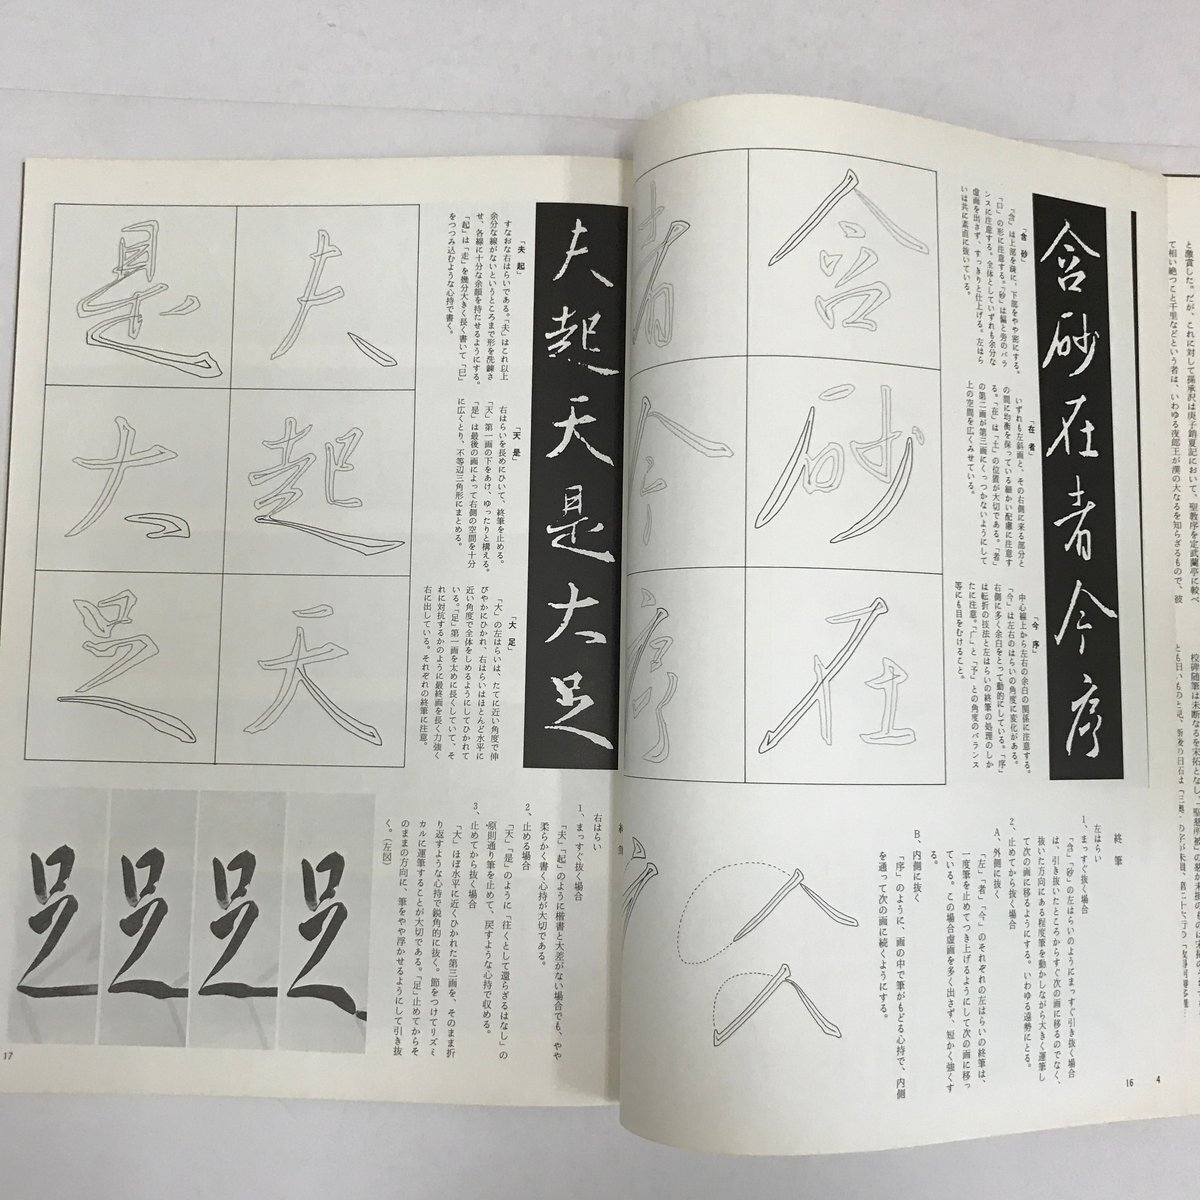 と激賞した。だが、これに対して孫承沢は庚子銷夏記において、聖教序を定武蘭亭に較べ
て相い絶つこと千里などという者は、いわゆる夜郎王が漢の大なるを知らざるもので、彼
校碑随筆は未断なるを宋拓となし、
4
含砂在者今序
「含 砂」
「含」は上部を疎に、下部をやや密にする。
「口」の形に注意する。「砂」は偏と旁のバラ
ンスに注意する。全体としていずれも余分な
虚画を出さず、すっきりと仕上げる。左はら
いは共に素直に抜いている。
「在 者」
いずれも左斜画と、その右側に来る部分と
の間に均衡を保っている細かい配慮に注意す
る。「在」は「土」の位置が大切である。「者」
の第二画が第三画にくっつかないようにして
上の空間を広くみせている。
「今 序」
中心線上から左右の余白の関係に注意する。
「今」は左右のはらいの角度に変化がある。
右側に多く余白をとって動的にしている。「序」
は転折の技法と左はらいの終筆の処理のしか
たに注意。「广」と「予」との角度のバランス
等にも目をむけること。
含
砂
在
者
今
序
終 筆
左はらい
1、まっすぐ抜く場合
「含」「砂」の左はらいのようにまっすぐ引き抜く場合
は、引き抜いたところからすぐ次の画に移るのでなく、
抜いた方向にある程度筆を動かしながら大きく運筆し
て次の画に移るようにする。いわゆる遠勢にとる。
2、止めてから抜く場合
A、外側に抜く
「左」「者」「今」のそれぞれの左はらいの終筆は、
一度筆を止めてつき上げるようにして次の画に移っ
ている。この場合虚画を多く出さず、短かく強くす
る。
B、内側に抜く
「序」のように、画の中で筆がもどる心持で、内側
を通って次の画に続くようにする。
16
夫起天是大足
「夫 起」
すなおな右はらいである。「夫」はこれ以上
余分な線がないというところまで形を洗錬さ
せ、各線に十分な余韻を持たせるようにする。
「起」は「走」を幾分大きく長く書いて「巳」
をつつみ込むような心持で書く。
「天 是」
右はらいを長めにひいて、終筆を止める。
「天」第一画の下をあけ、ゆったりと構える。
「是」は最後の画によって右側の空間を十分
に広くとり、不等辺三角形にまとめる。
「大 足」
「大」の左はらいは、たてに近い角度で伸
びやかにひかれ、右はらいはほとんど水平に
近い角度で全体をしめるようにしてひかれて
いる。「足」第一画を太めに長くしていて、そ
れに対抗するかのように最終画を長く力強く
右に出している。それぞれの終筆に注意。
夫
起
天
是
大
足
右はらい
1、まっすぐ抜く場合
「夫」「起」のように楷書と大差がない場合でも、やや
柔らかく書く心持が大切である。
2、止める場合
「天」「是」のように「往くとして還らざるはなし」の
原則通り筆を止めて、戻すような心持で収める。
3、止めてから抜く場合
「大」ほぼ水平に近くひかれた第三画を、そのまま折
り返すような心持で鋭角的に抜く。節をつけてリズミ
カルに運筆することが大切である。「足」止めてからそ
のままの方向に、筆をやや浮かせるようにして引き抜
く。(左図)
足
足
足
足
17